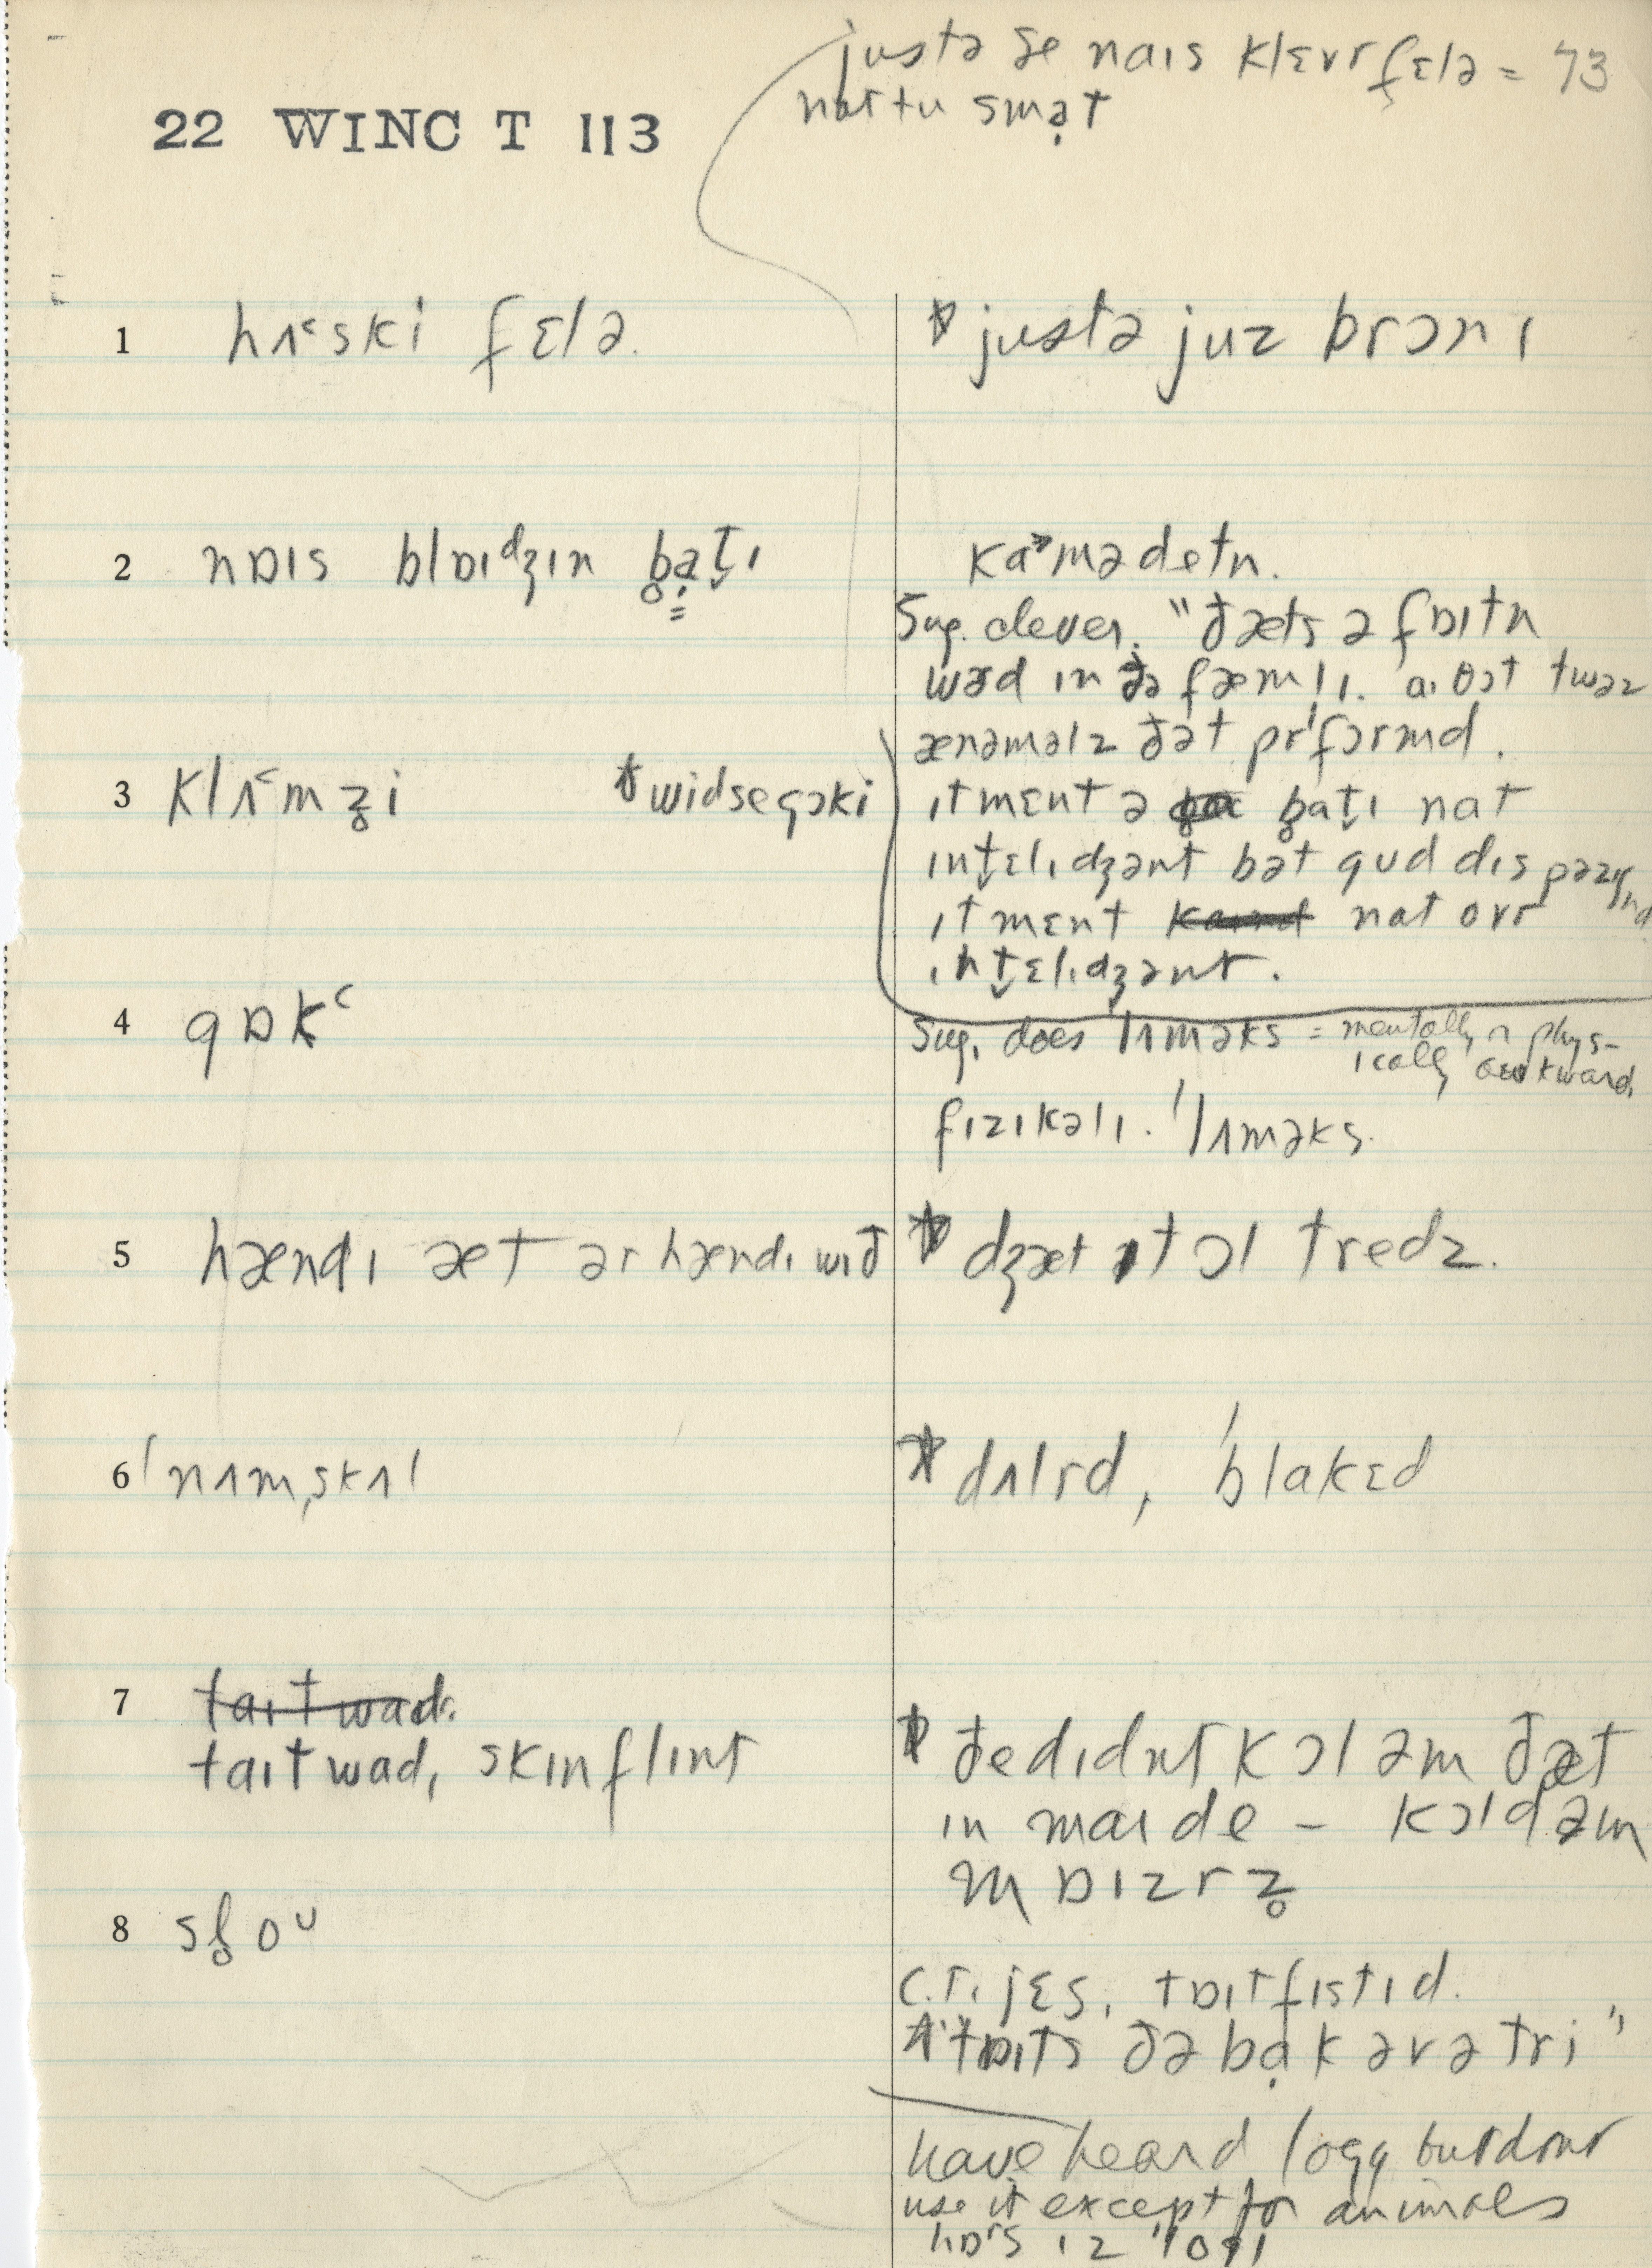 justə se nais klɛvr fɛlə = 73
nat tu smạt
22 WINC T 113
1 hʌ˂ski fɛlə.
justə juz brɔnɪ
2 nɒɪs blɒɪdʒɪn b̥ạt̬ɪ
ka˃mədetn.
Sug. clever. "ðæts ə fɒɪtn
wɝd ɪn ðə fæml̩ɪ. aɪ θɔt twəz
ænəməlz ðət prˈfɔrmd.
3 klʌ˂mʒ̥i widsegəki
ɪt mɛnt ə b̥at̬ɪ nat
ɪnt̬ɛlɪdʒənt bət gud dɪspəzɪʃn
ɪt mɛnt nat ovr
ɪnt̬ɛlɪdʒənt.
4 gɒk˂
Sug. does lʌməks = mentally or phys-
ically awkward.
fɪzɪkəlɪ. ˈlʌməks.
5 hændɪ æt ər hændɪ wɪð
dʒæt ɪt ɔl tredz.
6 ˈnʌmˌskʌl
dʌlrd, ˈblakɛd
7 taɪtwad.
taɪtwad, skɪnflɪnt
ðe dɪdnt kɔl əm ðæt
ɪn maɪ de – kɔld əm
mɒɪzrz̥
8 sl̥oᴜ
c.r. jɛs, tɒɪtfɪstɪd.
"tɒɪts ðə bạk əv ə tri"
have heard logy but dont
use it except for animals
hɒrs ɪz ˈlogɪ